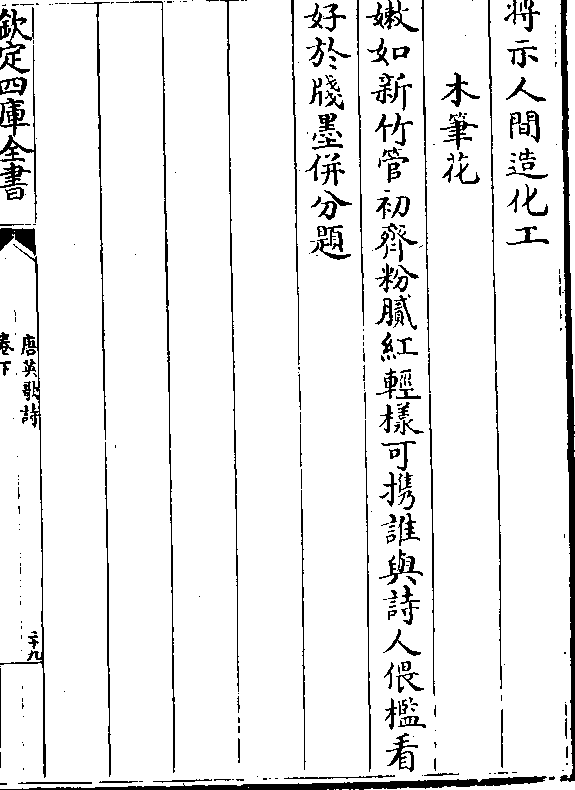 將示人間造化工
木筆花
嫩如新竹管初齊粉膩紅輕様可携誰與詩人偎檻看
好於牋墨併分題
欽定四庫全書
唐英歌詩
卷下
二十九